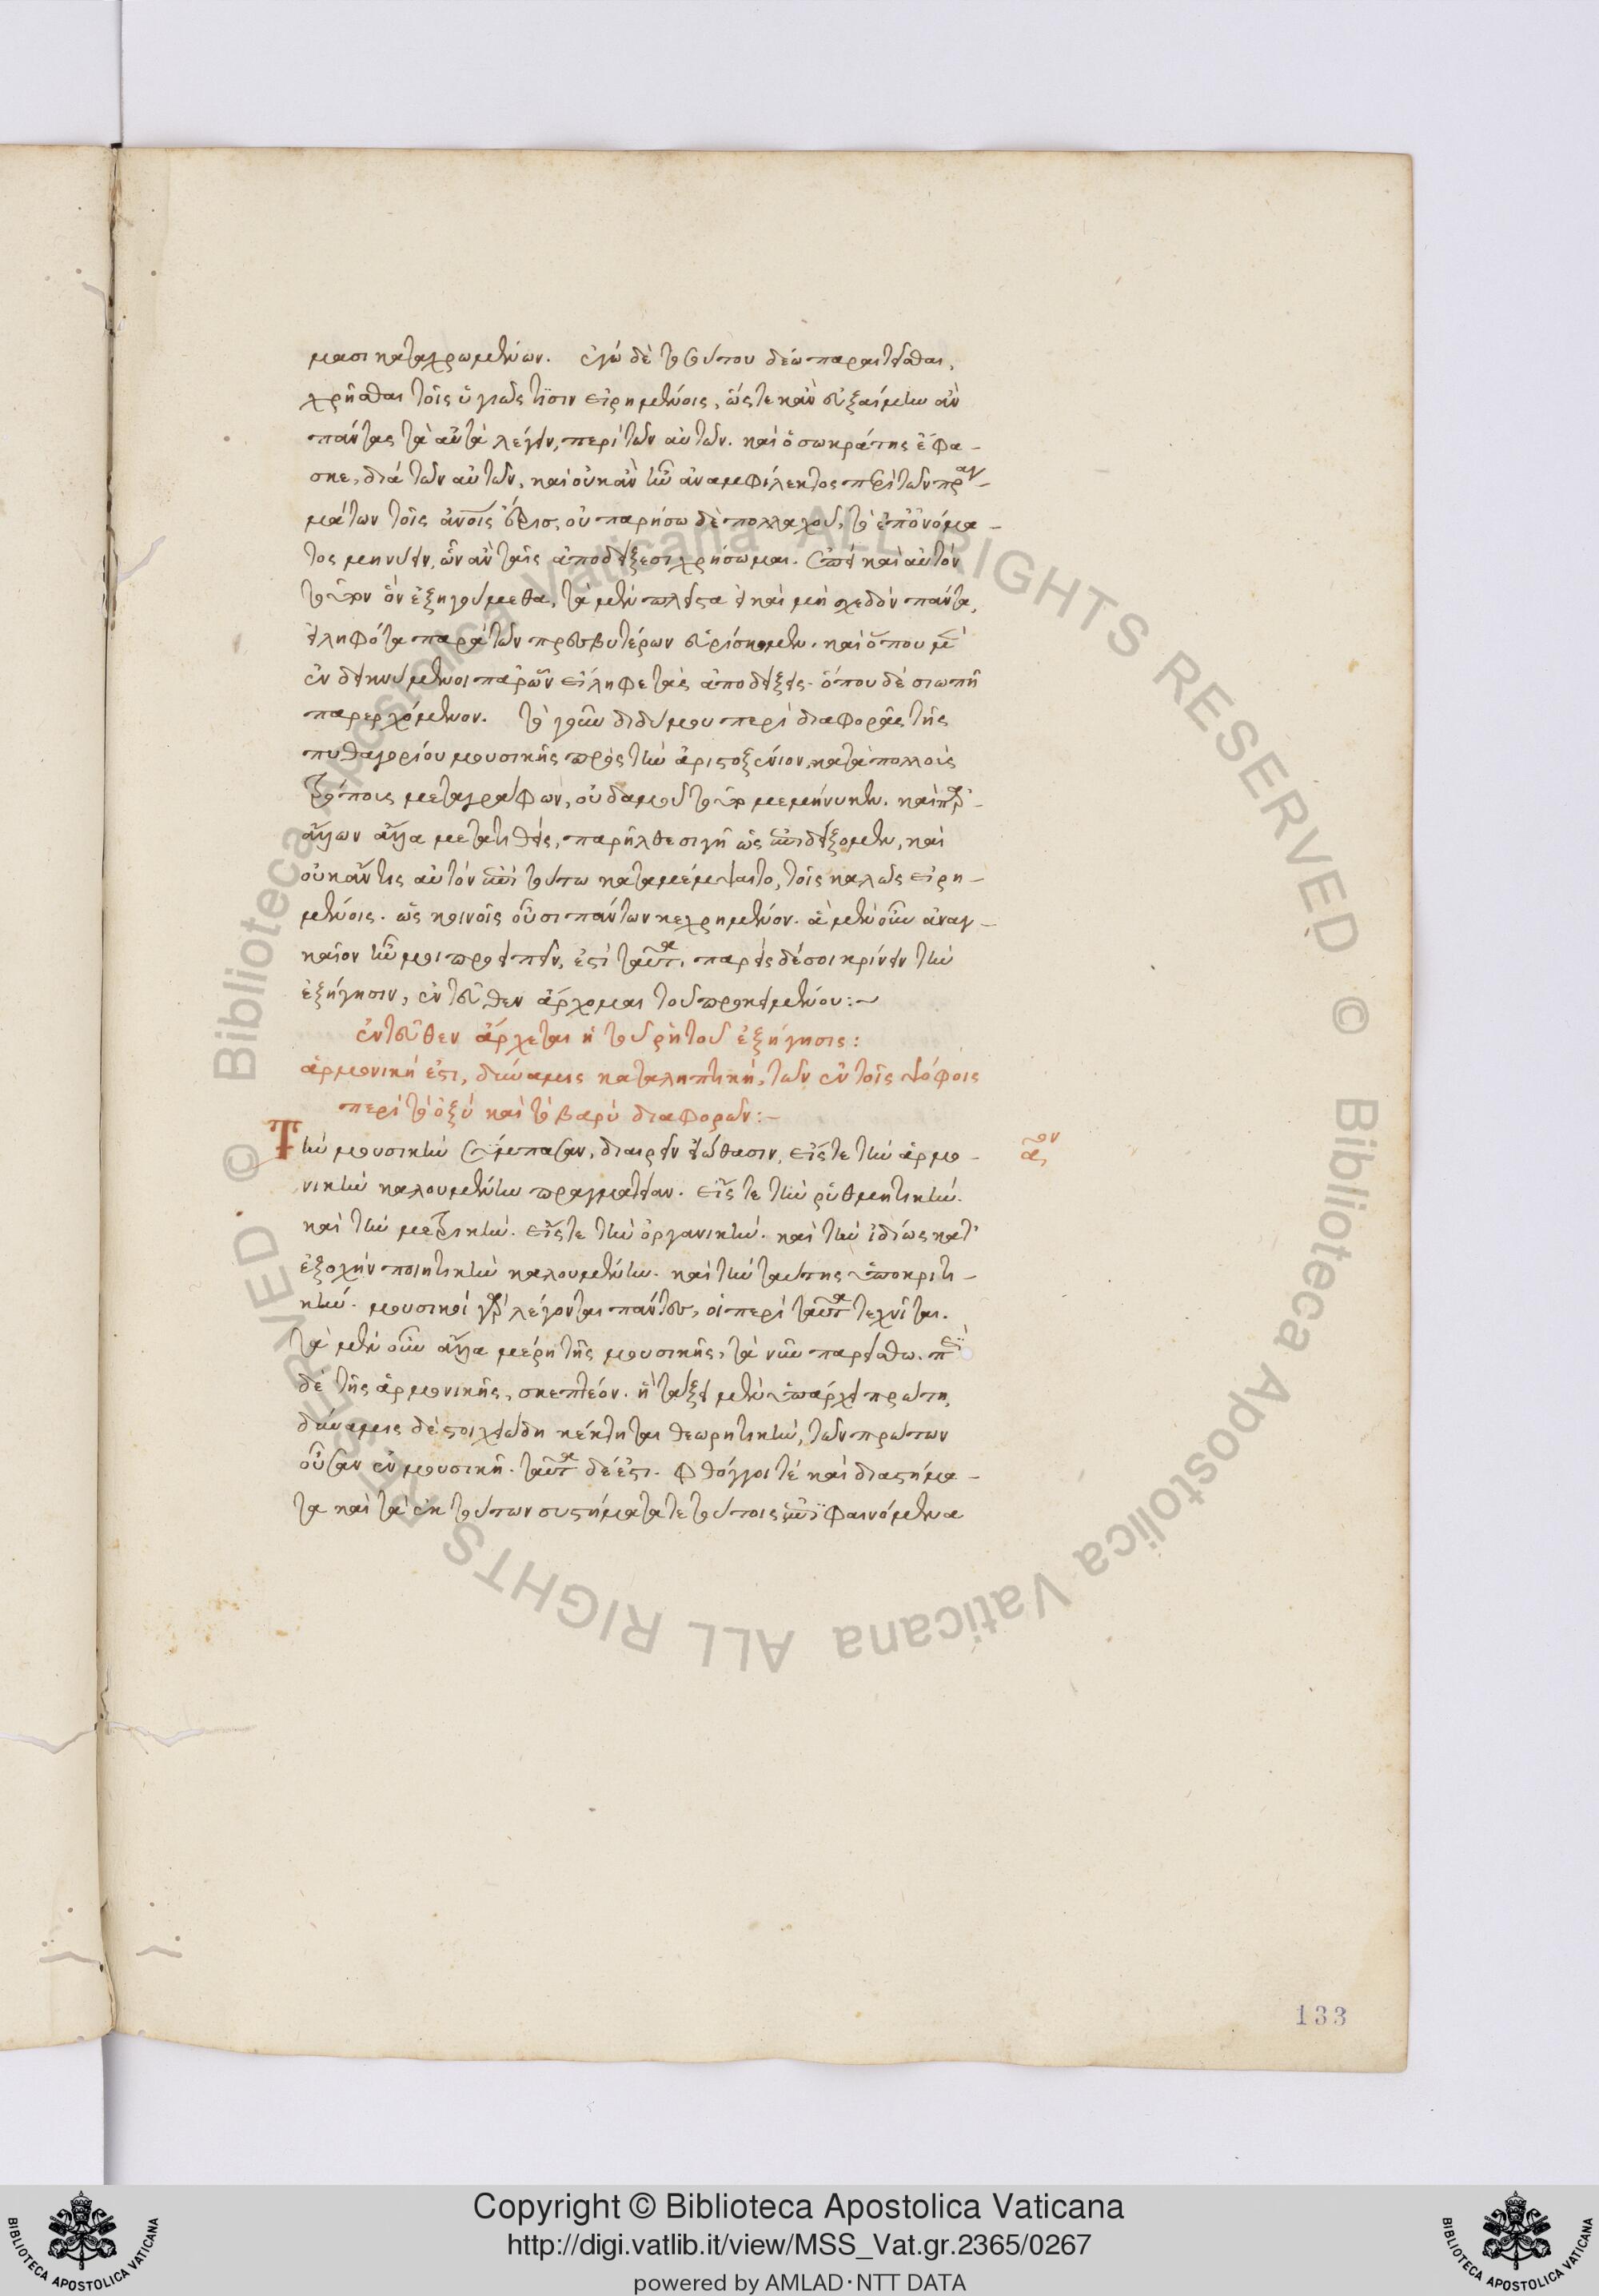 μασι καταχρωμένων. ἐγὼ δὲ τοσούτου δέω παραιτεῖσθαι,
χρῆσθαι τοῖς ὑγιῶς τισὶν εἰρημένοις, ὥστε κἂν εὐξαίμην ἂν
πάντας τὰ αὐτὰ λέγειν, περὶ τῶν αὐτῶν. καὶ ὁ σωκράτης ἔφα-
σκε, διὰ τῶν αὐτῶν, καὶ οὐκ ἂν ἦν ἀναμφίλεκτος περὶ τῶν πραγ-
μάτων τοῖς ἀνοις οὐ παρήσω δὲ πολλαχοῦ, τὸ ἐπ ὀνόμα-
τος μηνύειν, ὧν ἂν ταῖς ἀποδείξεσι χρήσωμαι. ἐπεὶ καὶ αὐτὸν
τοῦτον ὃν ἐξηγούμεθα, τὰ μὲν πλεῖστα εἰ καὶ μὴ σχεδὸν πάντα,
εἰληφότα παρὰ τῶν πρεσβυτέρων εὑρίσκομεν. καὶ ὅπου μὲν
ἐνδεικνύμενοι παρ ὧν εἴληφε τὰς ἀποδείξεις. ὅπου δὲ σιωπῇ
παρερχόμενον. τὸ γοῦν διδύμου περὶ διαφορᾶς τῆς
πυθαγορίου μουσικῆς πρὸς τὴν ἀριστοξένιον, κατὰ πολλοὺς
τόποις μεταγράφων, οὐδαμοῦ τοῦτο μεμήνυκεν. καὶ παρ'
ἄλλων ἄλλα μετατιθεὶς, παρῆλθε σιγῇ ὡς ἐπιδείξομεν, καὶ
οὐκ ἄν τις αὐτὸν ἐπὶ τούτω καταμέμψαιτο, τοῖς καλῶς εἰρη-
μένοις. ὡς κοινοῖς οὖσι πάντων κεχρημένον. ἃ μὲν οὖν ἀναγ-
καῖον ἦν μοι προειπεῖν, ἐστὶ ταῦτα. παρεὶς δέ σοι κρίνειν τὴν
ἐξήγησιν, ἐντεῦθεν ἄρχομαι τοῦ προκειμένου:~
ἐντεῦθεν ἄρχεται ἡ τοῦ ῥητοῦ ἐξήγησις:
ἁρμονική ἐστι, δύναμις καταληπτικὴ, τῶν ἐν τοῖς ψόφοις
περὶ τὸ ὀξὺ καὶ τὸ βαρὺ διαφορῶν:~
Τὴν μουσικὴν σύμπασαν, διαιρεῖν εἰώθασιν, εἴς τε τὴν ἁρμο-
νικὴν καλουμένην πραγματείαν. εἴς τε τὴν ῥυθμητικὴν.
καὶ τὴν μετρικὴν. εἴς τε τὴν ὀργανικὴν. καὶ τὴν ἰδίως κατ'
ἐξοχὴν ποιητικὴν καλουμένην. καὶ τὴν ταύτης ὑποκριτι-
κὴν. μουσικοὶ γὰρ λέγονται πάντες, οἱ περὶ ταῦτα τεχνῖται.
τὰ μὲν οὖν ἄλλα μέρη τῆς μουσικῆς, τὰ νῦν παρείσθω. περὶ
δὲ τῆς ἁρμονικῆς, σκεπτέον. ἣ τάξει μὲν ὑπάρχει πρώτη,
δύναμις δὲ στοιχειώδη κέκτηται θεωρητικὴν, τῶν πρώτων
οὖσαν ἐν μουσικῇ. ταῦτα δέ ἐστι. φθόγγοι τὲ καὶ διαστήμα-
τα καὶ τὰ ἐκ τούτων συστήματα τε τούτοις ἐπιφαινόμενα
133
Copyright © Biblioteca Apostolica Vaticana
http://digi.vatlib.it/view/MSS_Vat.gr.2365/0267
powered by AMLAD·NTT DATA